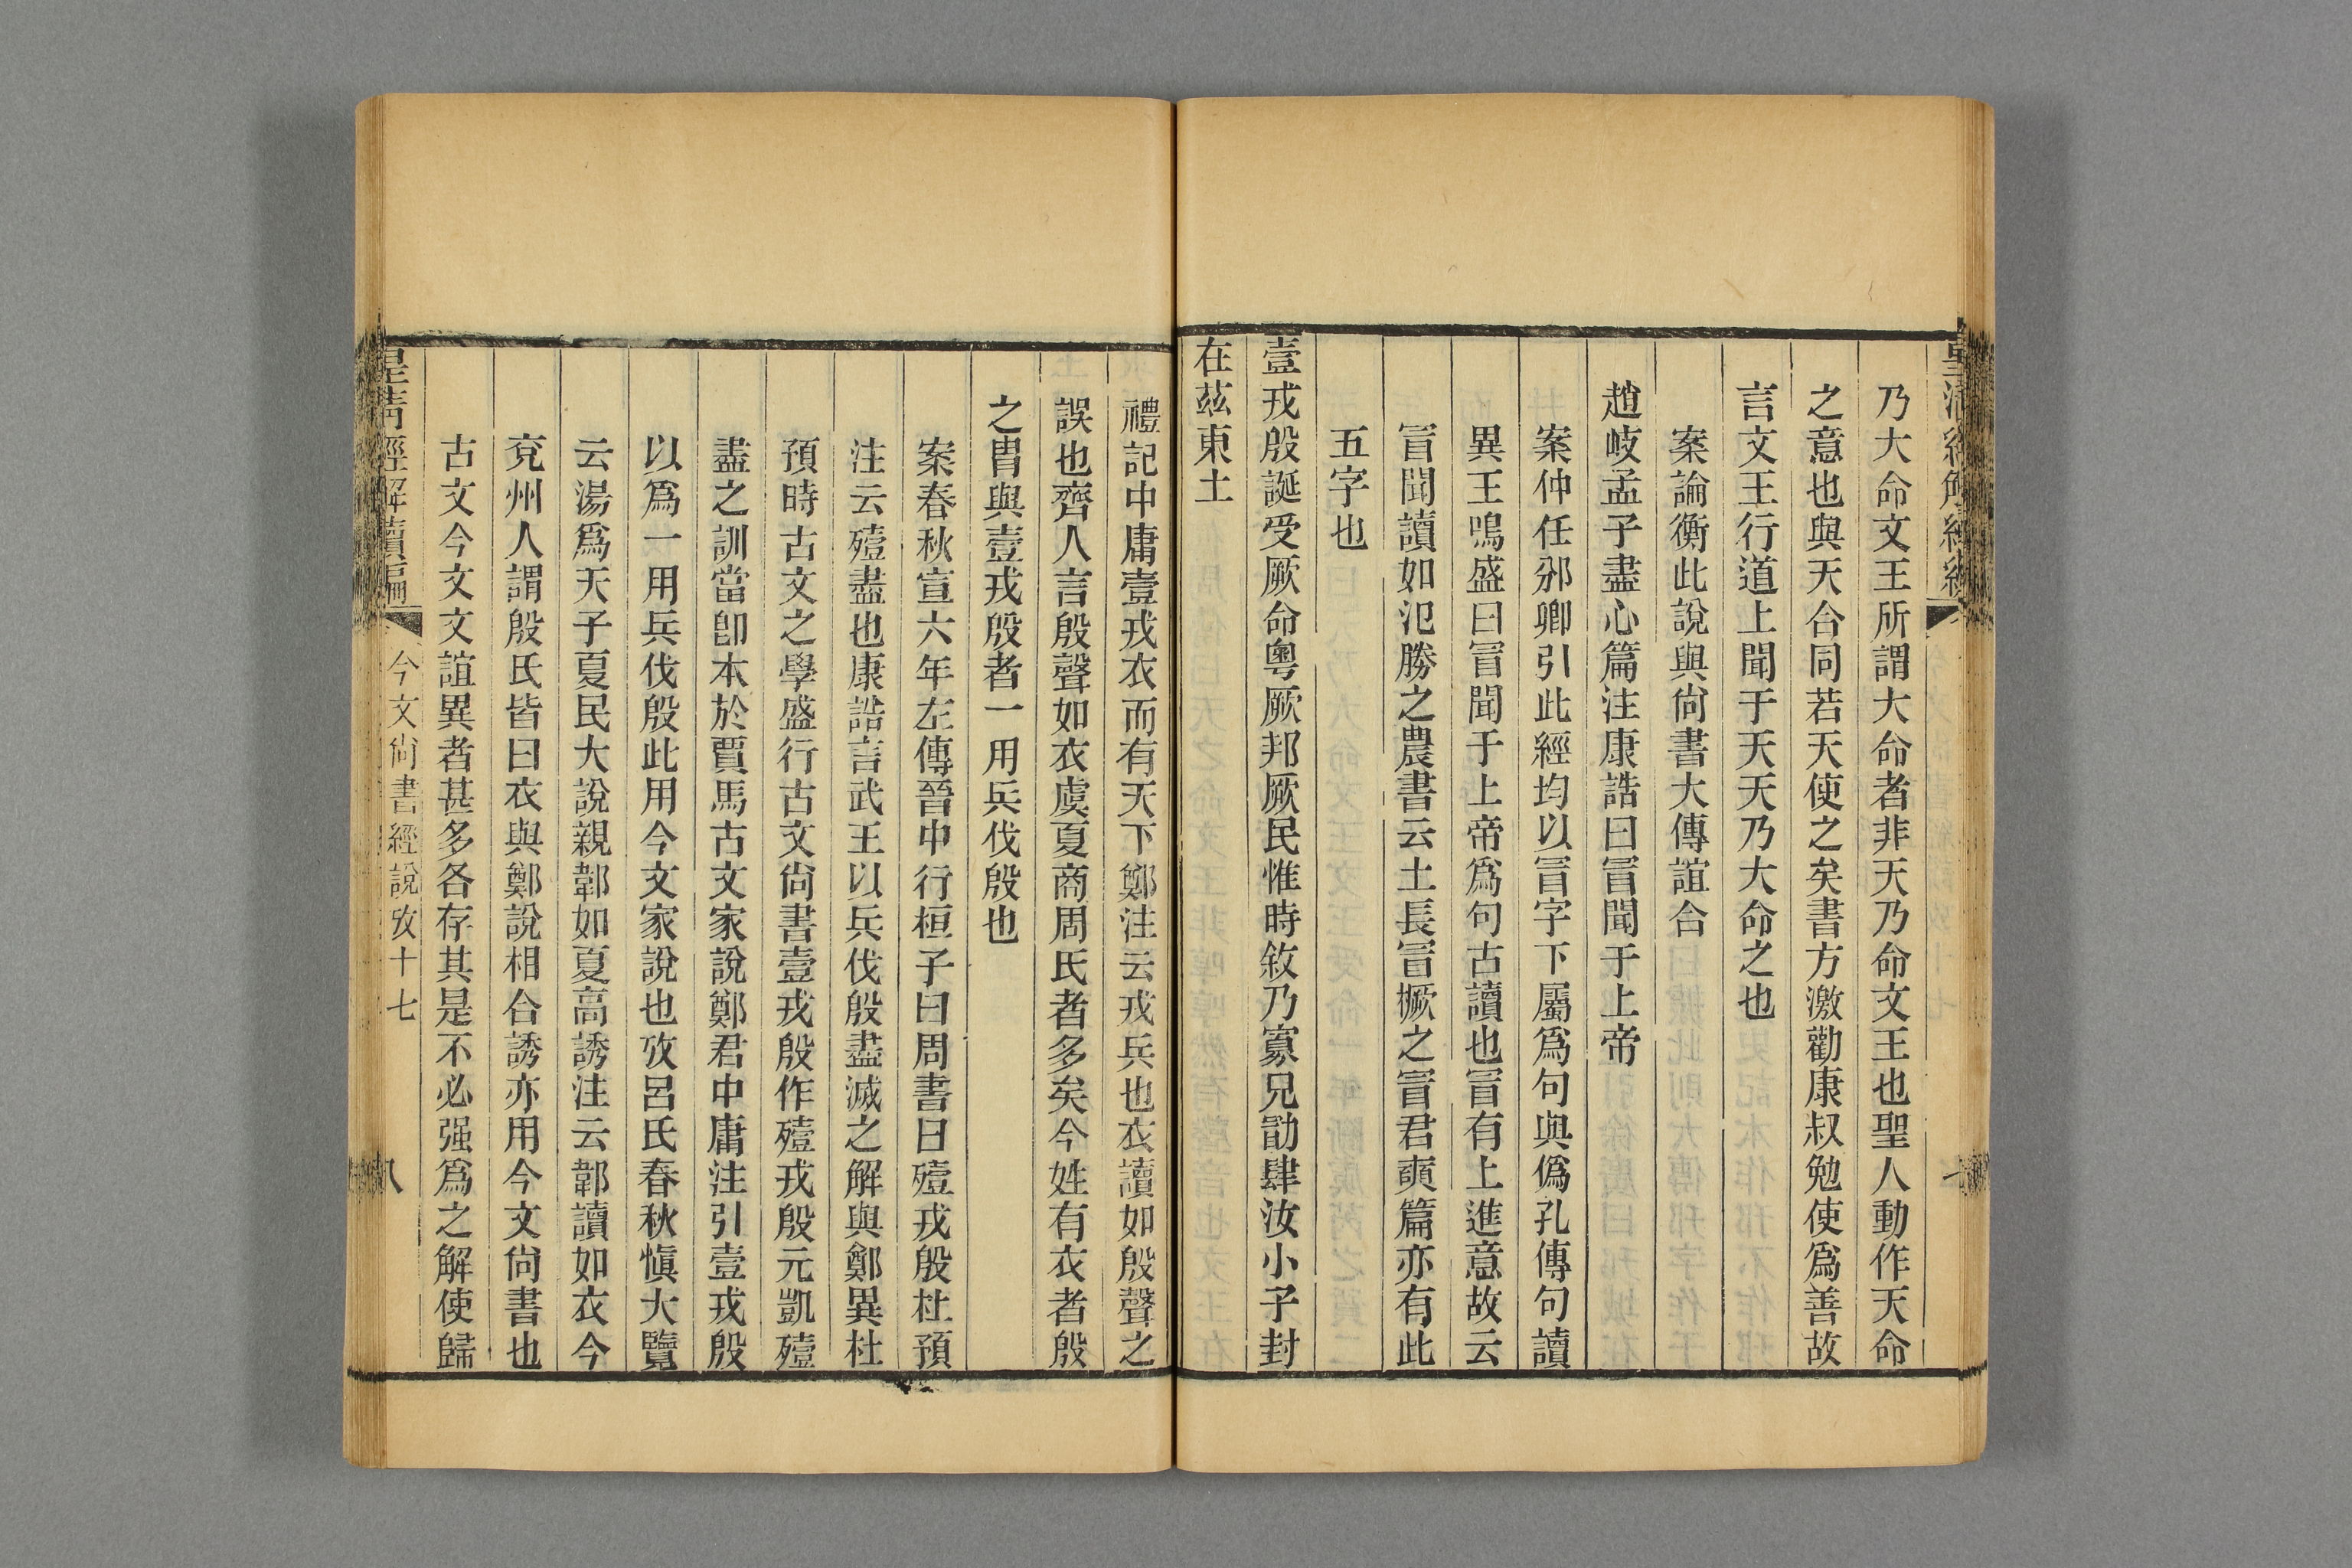 乃大命文王所謂大命者非天乃命文王也聖人動作天命
之意也與天合同若天使之矣書方激勸康叔勉使爲善故
言文王行道上聞于天天乃大命之也
案論衡此說與尙書大傳誼合
趙岐孟子盡心篇注康誥曰冒聞于上帝
案仲任邠卿引此經均以冒字下屬爲句與僞孔傳句讀
異王鳴盛曰冒聞于上帝爲句古讀也冒有上進意故云
冒聞讀如氾勝之農書云土長冒橛之冒君奭篇亦有此
五字也
壹戎殷誕受厥命粵厥邦厥民惟時敘乃寡兄勖肆汝小子封
在茲東土
禮記中庸壹戎衣而有天下鄭注云戎兵也衣讀如殷聲之
誤也齊人言殷聲如衣虞夏商周氏者多矣今姓有衣者殷
之胄與壹戎殷者一用兵伐殷也
案春秋宣六年左傳晉中行桓子曰周書曰殪戎殷杜預
注云殪盡也康誥言武王以兵伐殷盡滅之解與鄭異杜
預時古文之學盛行古文尙書壹戎殷作殪戎殷元凱殪
盡之訓當卽本於賈馬古文家說鄭君中庸注引壹戎殷
以爲一用兵伐殷此用今文家說也攷呂氏春秋愼大覽
云湯爲天子夏民大說親郼如夏高誘注云郼讀如衣今
兗州人謂殷氏皆曰衣與鄭說相合誘亦用今文尙書也
古文今文文誼異者甚多各存其是不必强爲之解使歸
皇清經解續編
今文尙書經說攷十七
八